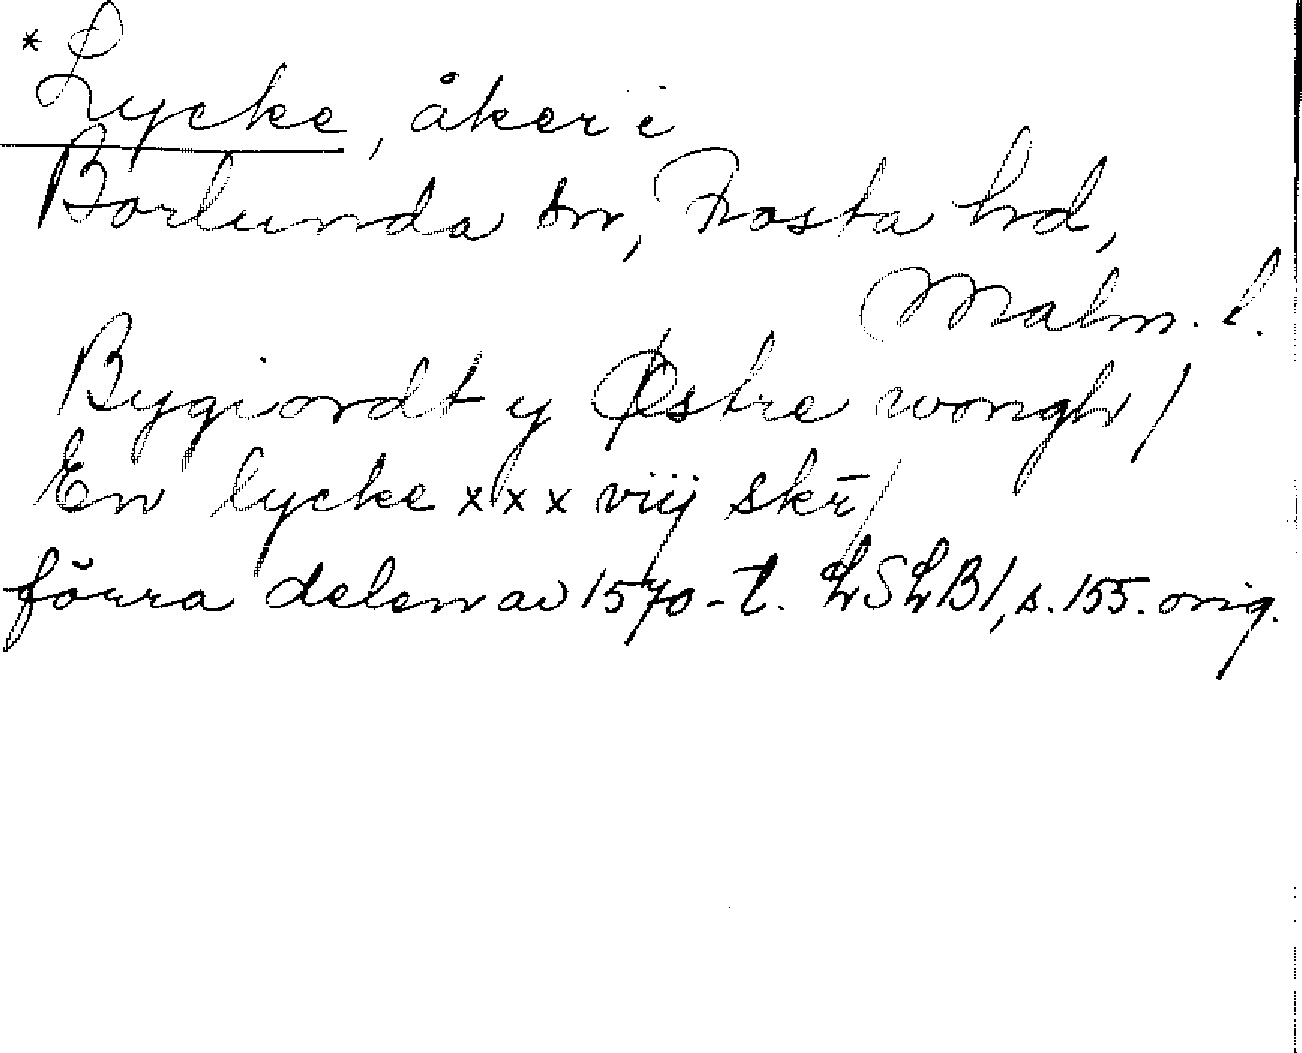 * Lycke, åker i
Borlunda sn, Frosta hd,
Malm. l.
Bygiordt y Østre wongh /
En lycke xxx viij skr̄ /
förra delen av 1570-t. LSLB1, s. 155. orig.